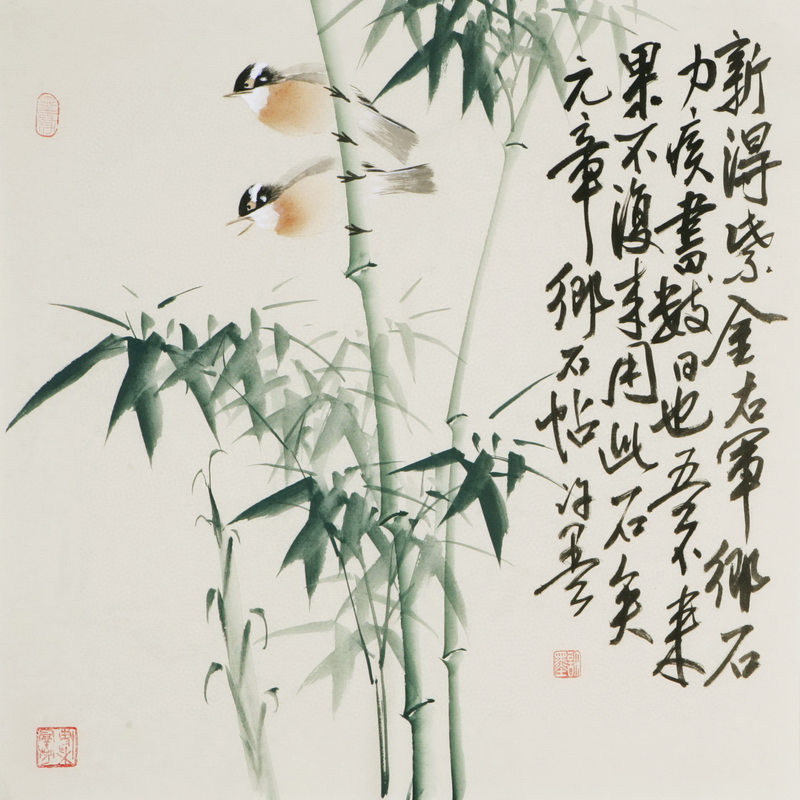 新淂紫金右軍鄉石
力疾書數日也吾不来
果不復来用此石矣
元章鄉石帖